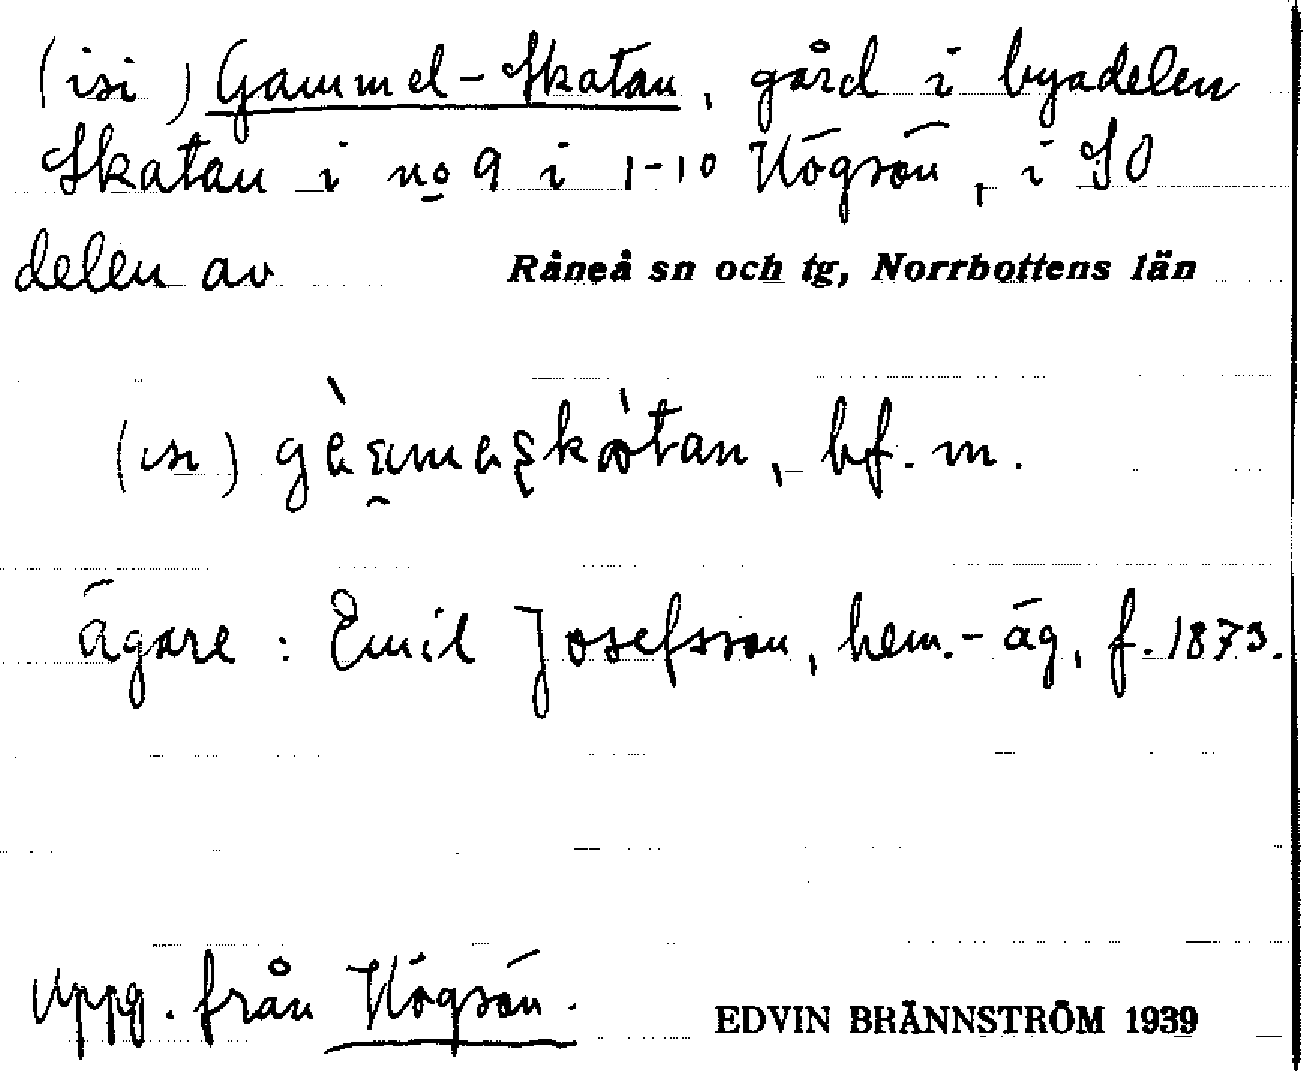 (isi) Gammel-Skatan, gård i byadelen
Skatan i no 9 i 1-10 Högsön, i SO
delen av Råneå sn och tg, Norrbottens län
(isi) bf. m.
Ägare: Emil Josefsson, hem.-äg, f. 1873.
Uppg. från Högsön. EDVIN BRÄNNSTRÖM 1939